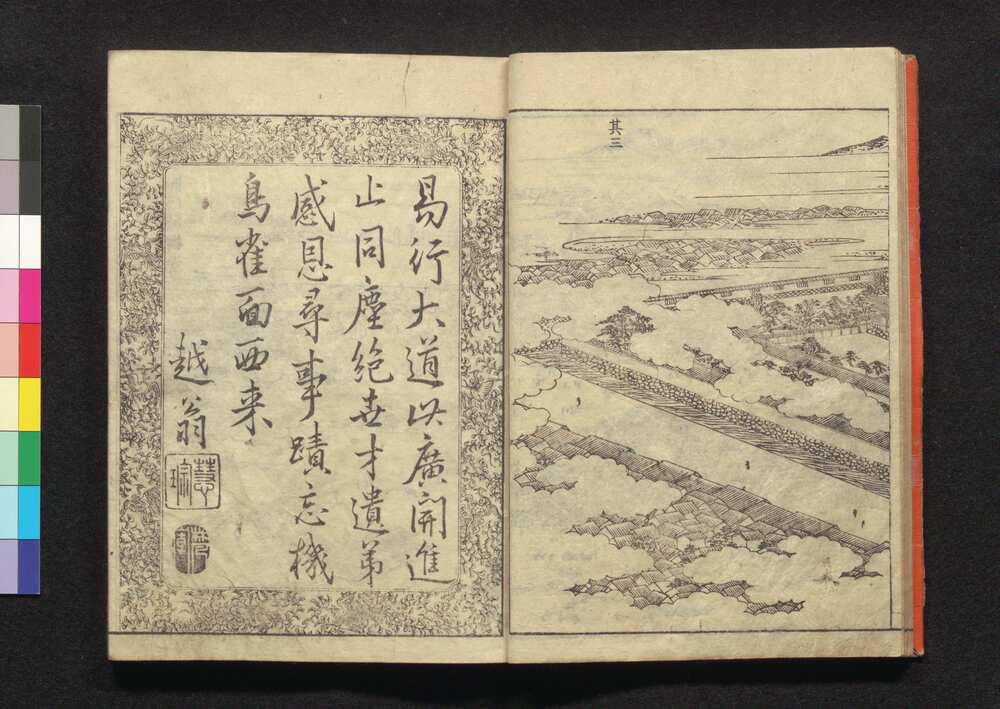 其三
易行大道此廣開進
止同塵絶世才遺弟
感恩尋事蹟忘機
鳥雀面西来
越翁
慧琮